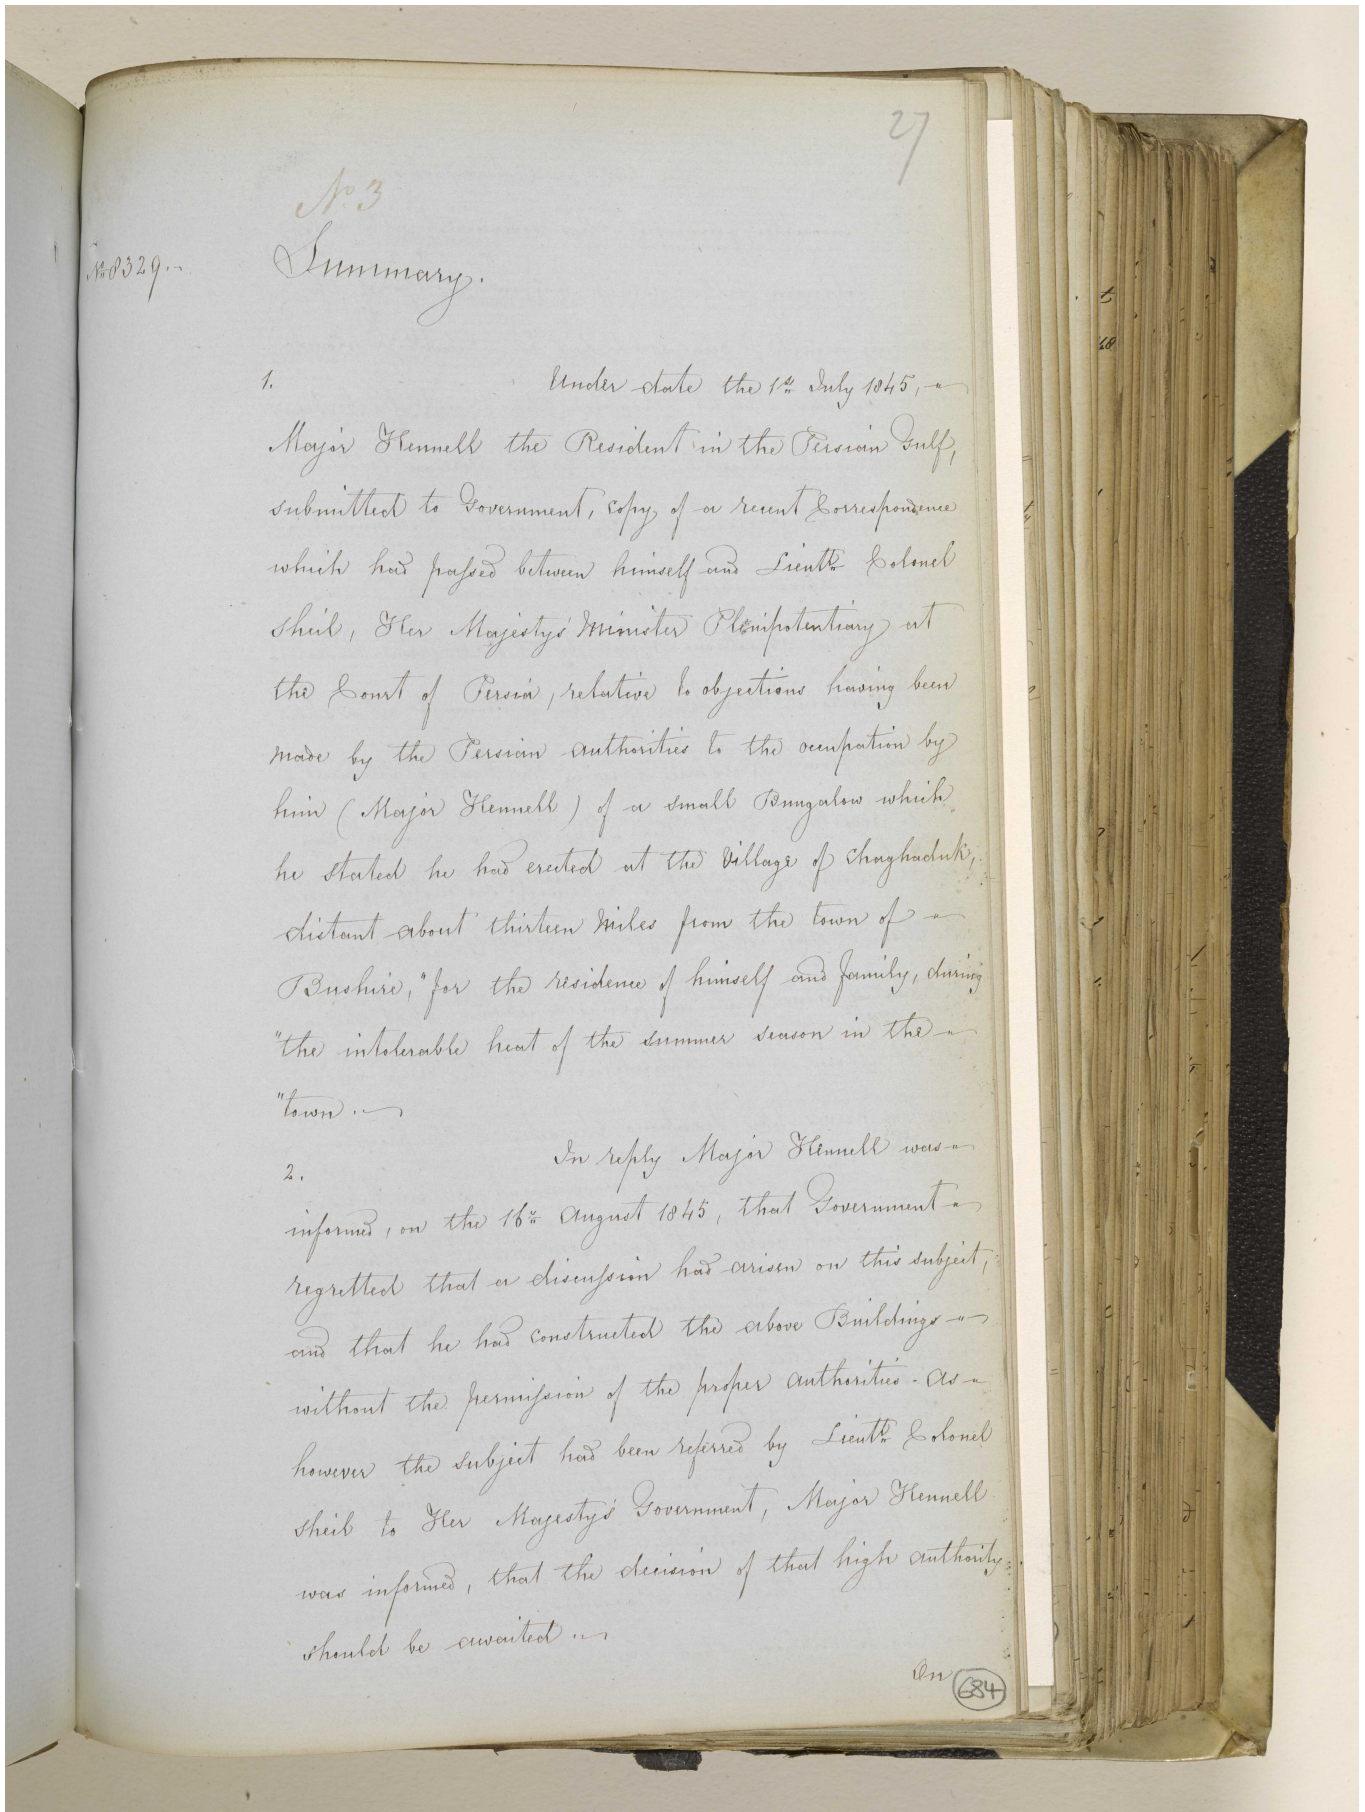 27
No. 3
No. 8329.
Summary.
1. Under date the 1st July 1845,
Major Hennell the Resident in the Persian Gulf,
submitted to Government, copy of a recent Correspondence
which had passed between himself and Lieutt. Colonel
Sheil, Her Majesty's Minister Plenipotentiary at
the Court of Persia, relative to objections having been
made by the Persian authorities to the occupation by
him (Major Hennell) of a small Bungalow which
he stated he had erected at the Village of Chaghaduk,
distant about thirteen Miles from the town of
Bushire, "for the residence of himself and family, during
"the intolerable heat of the summer season in the
"town.
2. In reply Major Hennell was
informed, on the 16th August 1845, that Government
regretted that a discussion had arisen on this subject,
and that he had constructed the above Buildings
without the permission of the proper authorities. As
however the subject had been referred by Lieutt. Colonel
Sheil to Her Majesty's Government, Major Hennell
was informed, that the decision of that high authority
should be awaited.
On
684